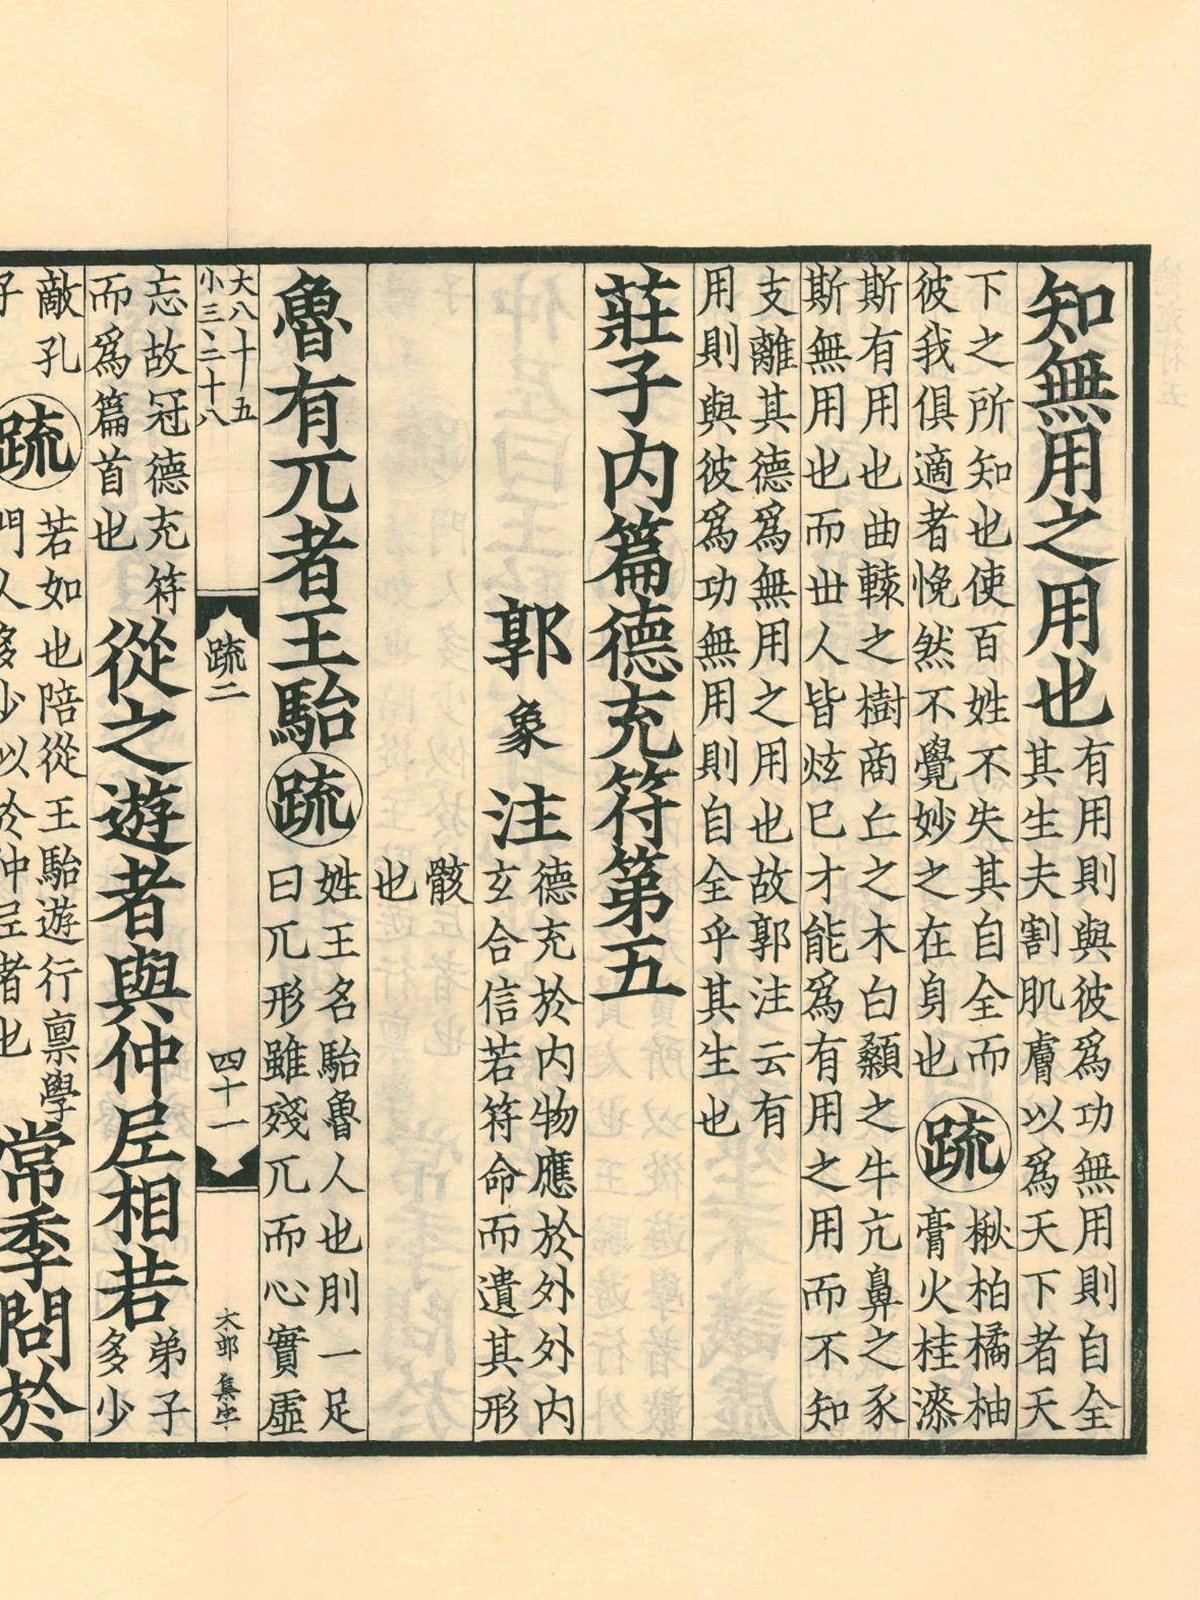 知無用之用也有用則與彼爲功無用則自全
其生夫割肌膚以爲天下者天
下之所知也使百姓不失其自全而
彼我俱適者悗然不覺妙之在身也疏楸柏橘柚
膏火桂漆
斯有用也曲轅之樹商丘之木白顙之牛亢鼻之豕
斯無用也而丗人皆炫巳才能爲有用之用而不知
支離其德爲無用之用也故郭注云有
用則與彼爲功無用則自全乎其生也
莊子内篇德充符第五
郭象注德充於内物應於外外内
玄合信若符命而遺其形
骸
也
魯有兀者王駘疏姓王名駘魯人也刖一足
曰兀形雖殘兀而心實虛
大八十五
小三二十八
疏二
四十一
忘故冠德充符
而爲篇首也從之遊者與仲𡰥相若弟子
多少
敵孔疏若如也陪從王駘遊行禀學
子門人多少以於仲𡰥者也常季問於